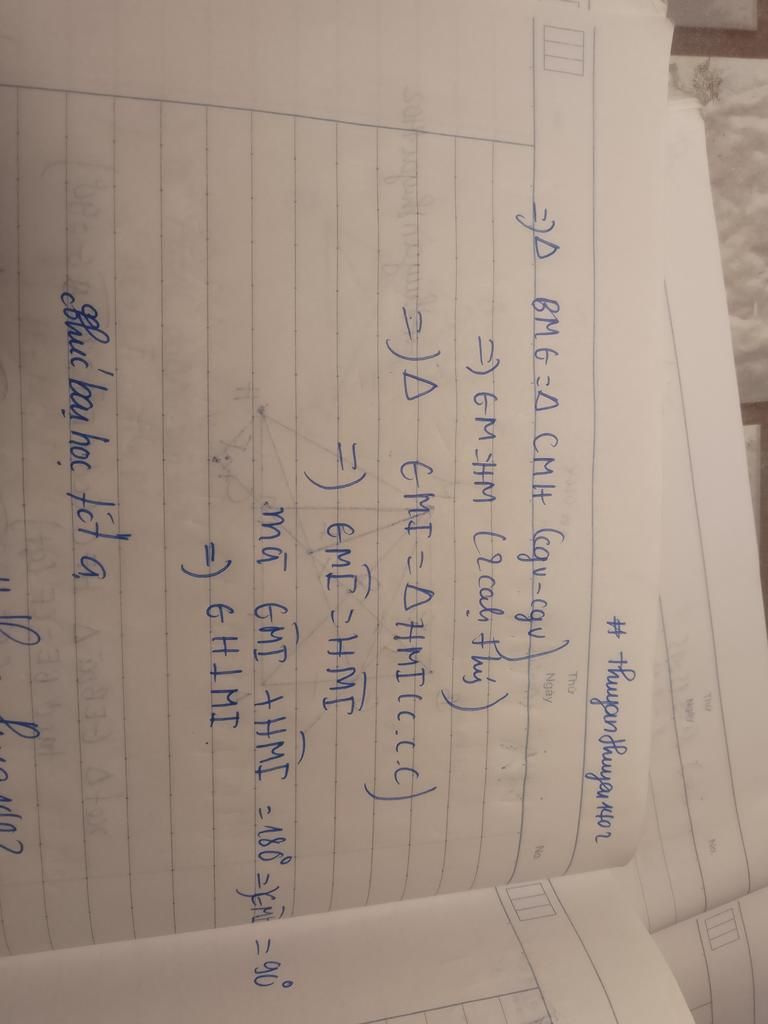 # thuyanthuyan1402
Thứ
Ngày
No.
=) Δ BME = Δ CMH (cgv-cgv)
=) EM = HM (2 cạh t/ứ)
=) Δ EMI = Δ HMI (c.c.c)
=) EMI = HMI
mà EMI + HMI = 180° =) EMI = 90°
=) EH ⊥ MI
chúc bạn học tốt ạ
Thứ
Ngày
No.